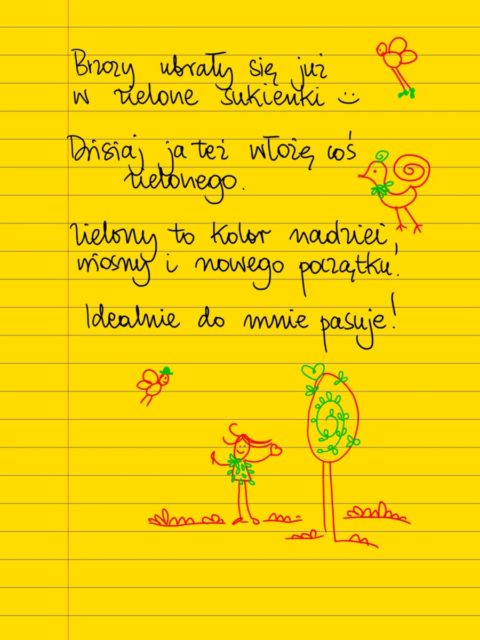 Brzozy ubrały się już
w zielone sukienki :)
Dzisiaj ja też włożę coś
zielonego.
Zielony to kolor nadziei,
wiosny i nowego początku.
Idealnie do mnie pasuje!